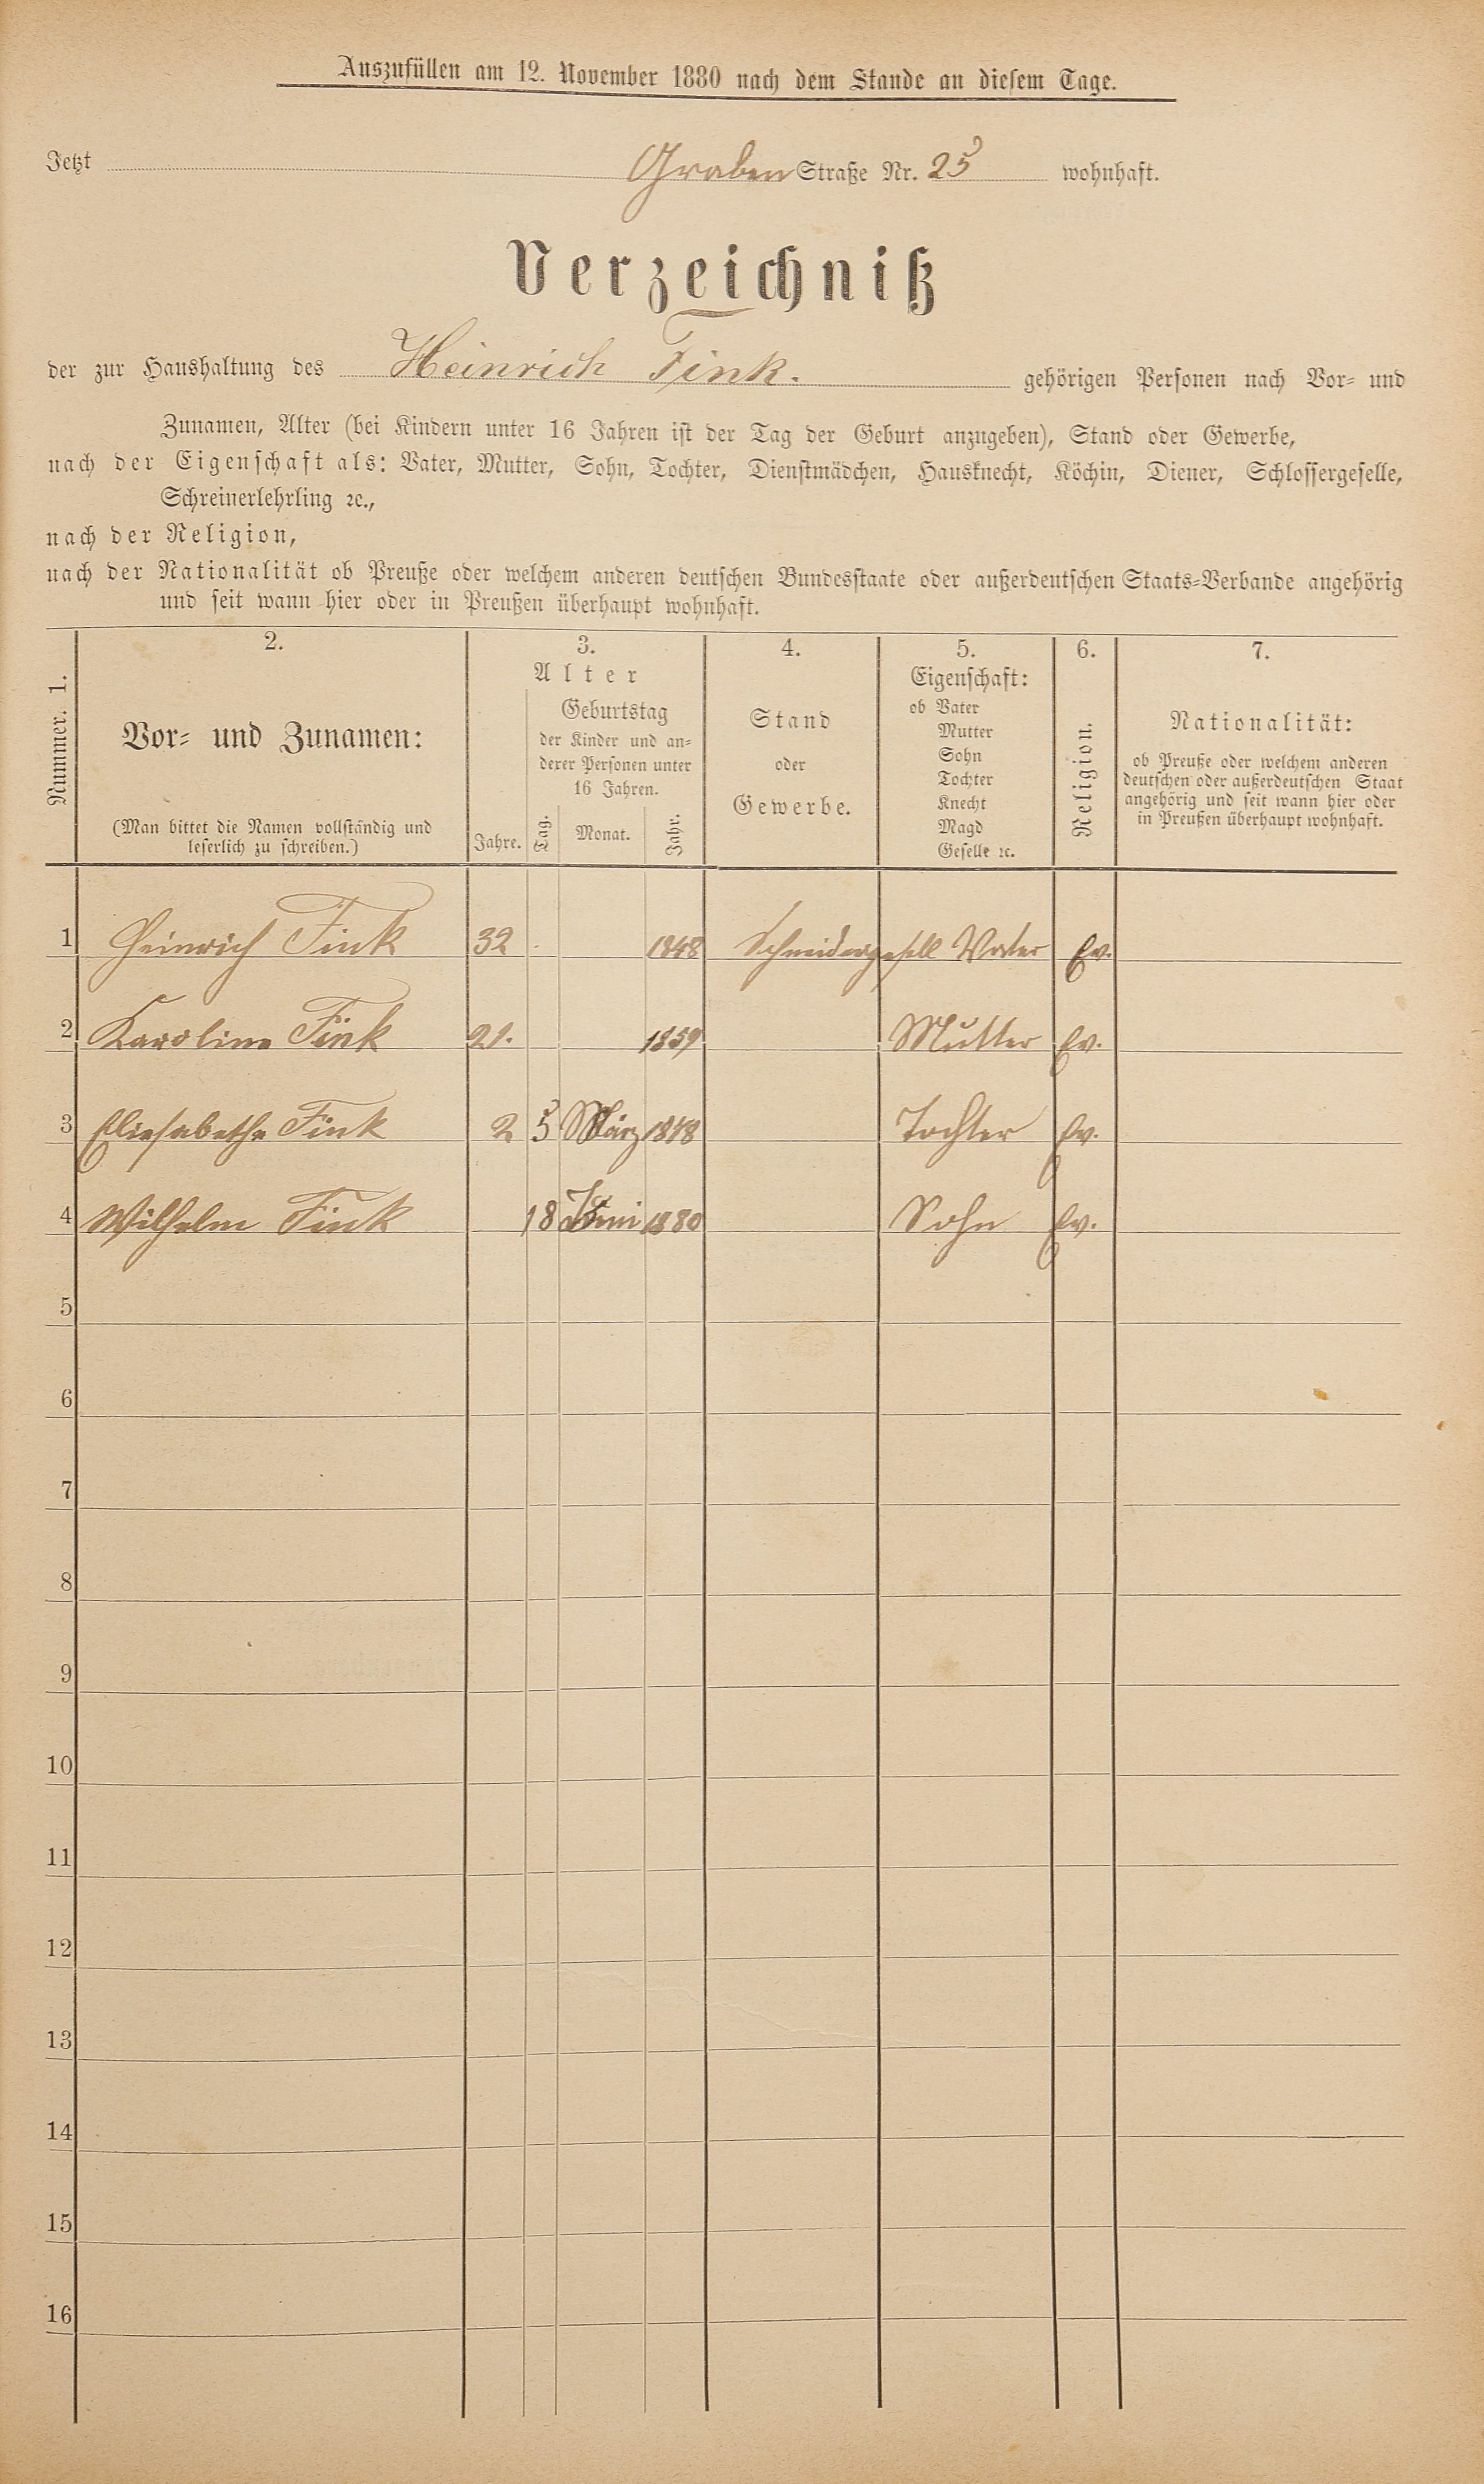 Auszufüllen am 12. November 1880 nach dem Stande an diesem Tage.
Jetzt Graben Straße Nr. 25 wohnhaft.
Verzeichniß
der zur Haushaltung des Heinrich Fink. gehörigen Personen nach Vor- und
Zunamen, Alter (bei Kindern unter 16 Jahren ist der Tag der Geburt anzugeben), Stand oder Gewerbe,
nach der Eigenschaft als: Vater, Mutter, Sohn, Tochter, Dienstmädchen, Hausknecht, Köchin, Diener, Schlossergeselle,
Schreinerlehrling ꝛc.,
nach der Religion,
nach der Nationalität ob Preuße oder welchem anderen deutschen Bundesstaate oder außerdeutschen Staats-Verbande angehörig
und seit wann hier oder in Preußen überhaupt wohnhaft.
Nummer. 1.
2.
Vor- und Zunamen:
(Man bittet die Namen vollständig und
leserlich zu schreiben.)
3.
Alter
Geburtstag
der Kinder und an-
derer Personen unter
16 Jahren.
Jahre. Tag. Monat. Jahr.
4.
Stand
oder
Gewerbe.
5.
Eigenschaft:
ob Vater
Mutter
Sohn
Tochter
Knecht
Magd
Geselle ꝛc.
6.
Religion.
7.
Nationalität:
ob Preuße oder welchem anderen
deutschen oder außerdeutschen Staat
angehörig und seit wann hier oder
in Preußen überhaupt wohnhaft.
1 Heinrich Fink 32 1848 Schneidergesell Vater Ev.
2 Karoline Fink 21. 1859 Mutter Ev.
3 Eliesabethe Fink 2 5 März 1878 Tochter Ev.
4 Wilhelm Fink 18 Juni 1880 Sohn Ev.
5
6
7
8
9
10
11
12
13
14
15
16